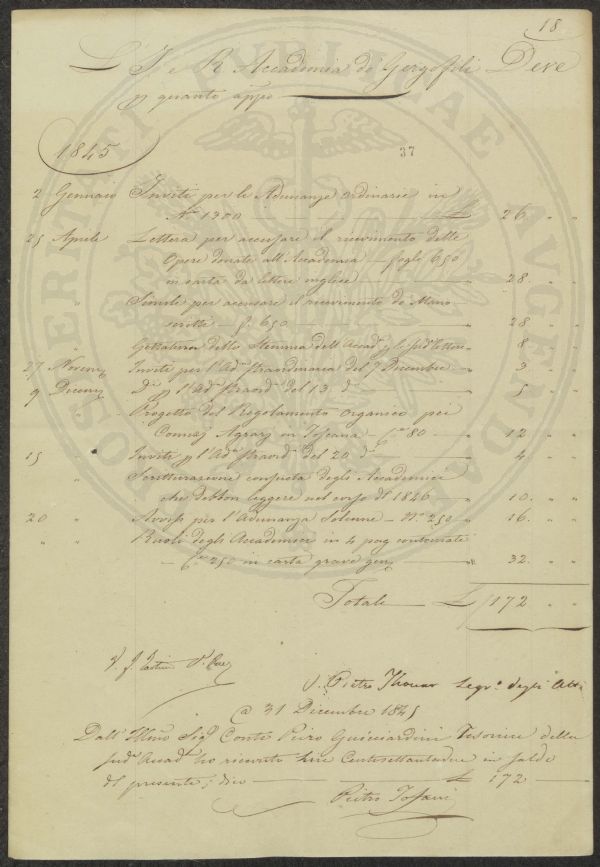 18.
L' I. e R. Accademia de' Gergofili Deve
p quanto appo
1845
37
2 Gennaio Inviti per le Adunanze ordinarie in
N° 1300 £ 26 " "
25 Aprile Lettera per accusare il ricevimento delle
Opere donate all'Accademia fogli 650
in carta da lettere inglese " 28. " "
" Simile per accusare il ricevimento de Mano
scritti f. 650 " 28 " "
" Gettatura dello Stemma dell'Accad. p le sudte lettere " 8 " "
27 Novemb Inviti per l'Ada straordinaria del 7 Decembre " 3 " "
9 Decemb Di p l'Ada straord. del 13 do " 5 " "
" Progetto del Regolamento Organico pei
Comizj Agrarj in Toscana 80 " 12 " "
15 " Inviti p l'Ada straord. del 20 do " 4. " "
" Scritturazione degli Accademici
che debbon leggere nel corso del 1846 " 10. " "
20 " Avvisi per l'Adunanza Solenne N. 250 " 16. " "
" " Ruoli degli Accademici in 4 pag contornate
250 in carta grave " 32. " "
Totale £ 172 " "
V.
Pietro Thouar Segr.o degli
@ 31 Dicembre 1845
Dall' Illmo Sig Conte Piero Guicciardini Tesoriere della
sud.a Accad.a ho ricevuto Lire Centosettantadue in saldo
del presente; dico £ 172
Pietro
VOS VERITATI PUBLICAE AUGENDAE